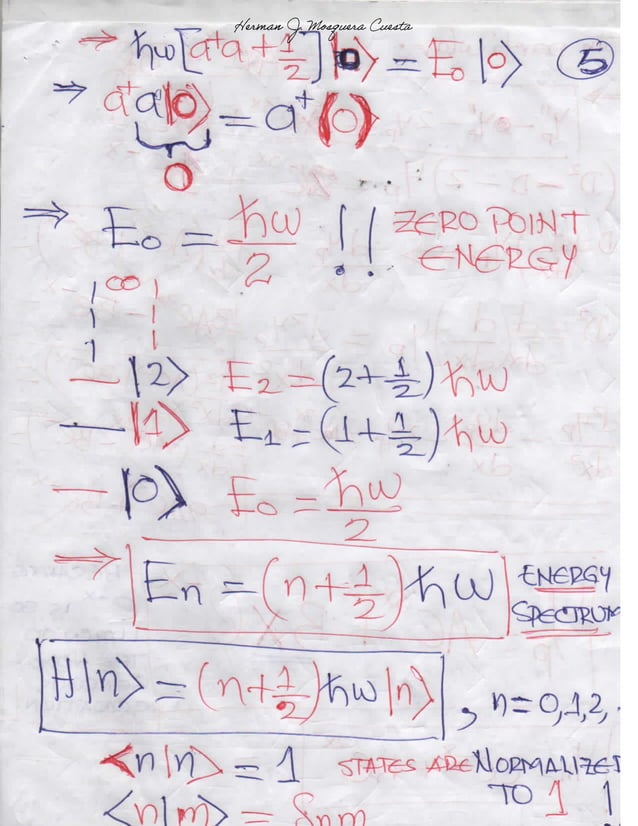 Herman J. Mosquera Cuesta
⇒ ħω[a†a + 1/2]|0⟩ = E₀|0⟩ 5
⇒ a†a|0⟩ = a†(0)
0
⇒ E₀ = ħω/2 !! ZERO POINT
ENERGY
∞
— |2⟩ E₂ = (2+1/2)ħω
— |1⟩ E₁ = (1+1/2)ħω
— |0⟩ E₀ = ħω/2
⇒ En = (n+1/2)ħω ENERGY
SPECTRUM
H|n⟩ = (n+1/2)ħω|n⟩ , n=0,1,2,.
⟨n|n⟩ = 1 STATES ARE NORMALIZED
TO 1 1
⟨n|m⟩ = δnm